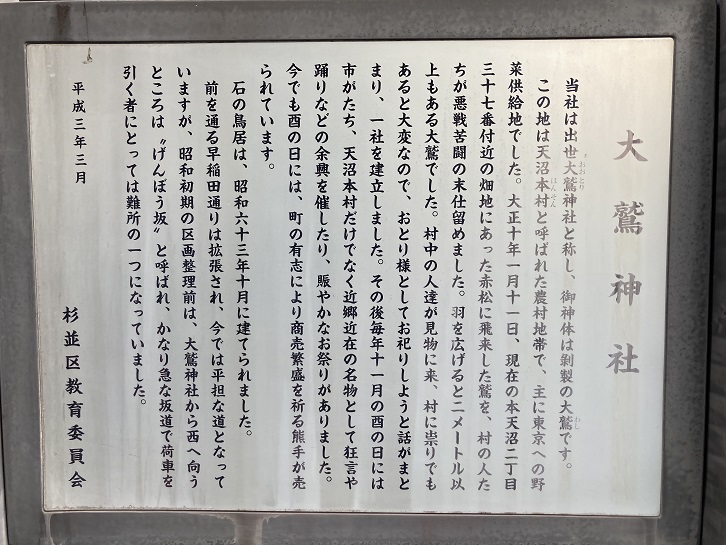 大鷲神社
当社は出世大鷲神社と称し、御神体は剝製の大鷲です。
この地は天沼本村と呼ばれた農村地帯で、主に東京への野
菜供給地でした。大正十年一月十一日、現在の本天沼二丁目
三十七番付近の畑地にあった赤松に飛来した鷲を、村の人た
ちが悪戦苦闘の末仕留めました。羽を広げると二メートル以
上もある大鷲でした。村中の人達が見物に来、村に祟りでも
あると大変なので、おとり様としてお祀りしようと話がまと
まり、一社を建立しました。その後毎年十一月の酉の日には
市がたち、天沼本村だけでなく近郷近在の名物として狂言や
踊りなどの余興を催したり、賑やかなお祭りがありました。
今でも酉の日には、町の有志により商売繁盛を祈る熊手が売
られています。
石の鳥居は、昭和六十三年十月に建てられました。
前を通る早稲田通りは拡張され、今では平担な道となって
いますが、昭和初期の区画整理前は、大鷲神社から西へ向う
ところは〝げんぼう坂〟と呼ばれ、かなり急な坂道で荷車を
引く者にとっては難所の一つになっていました。
平成三年三月
杉並区教育委員会